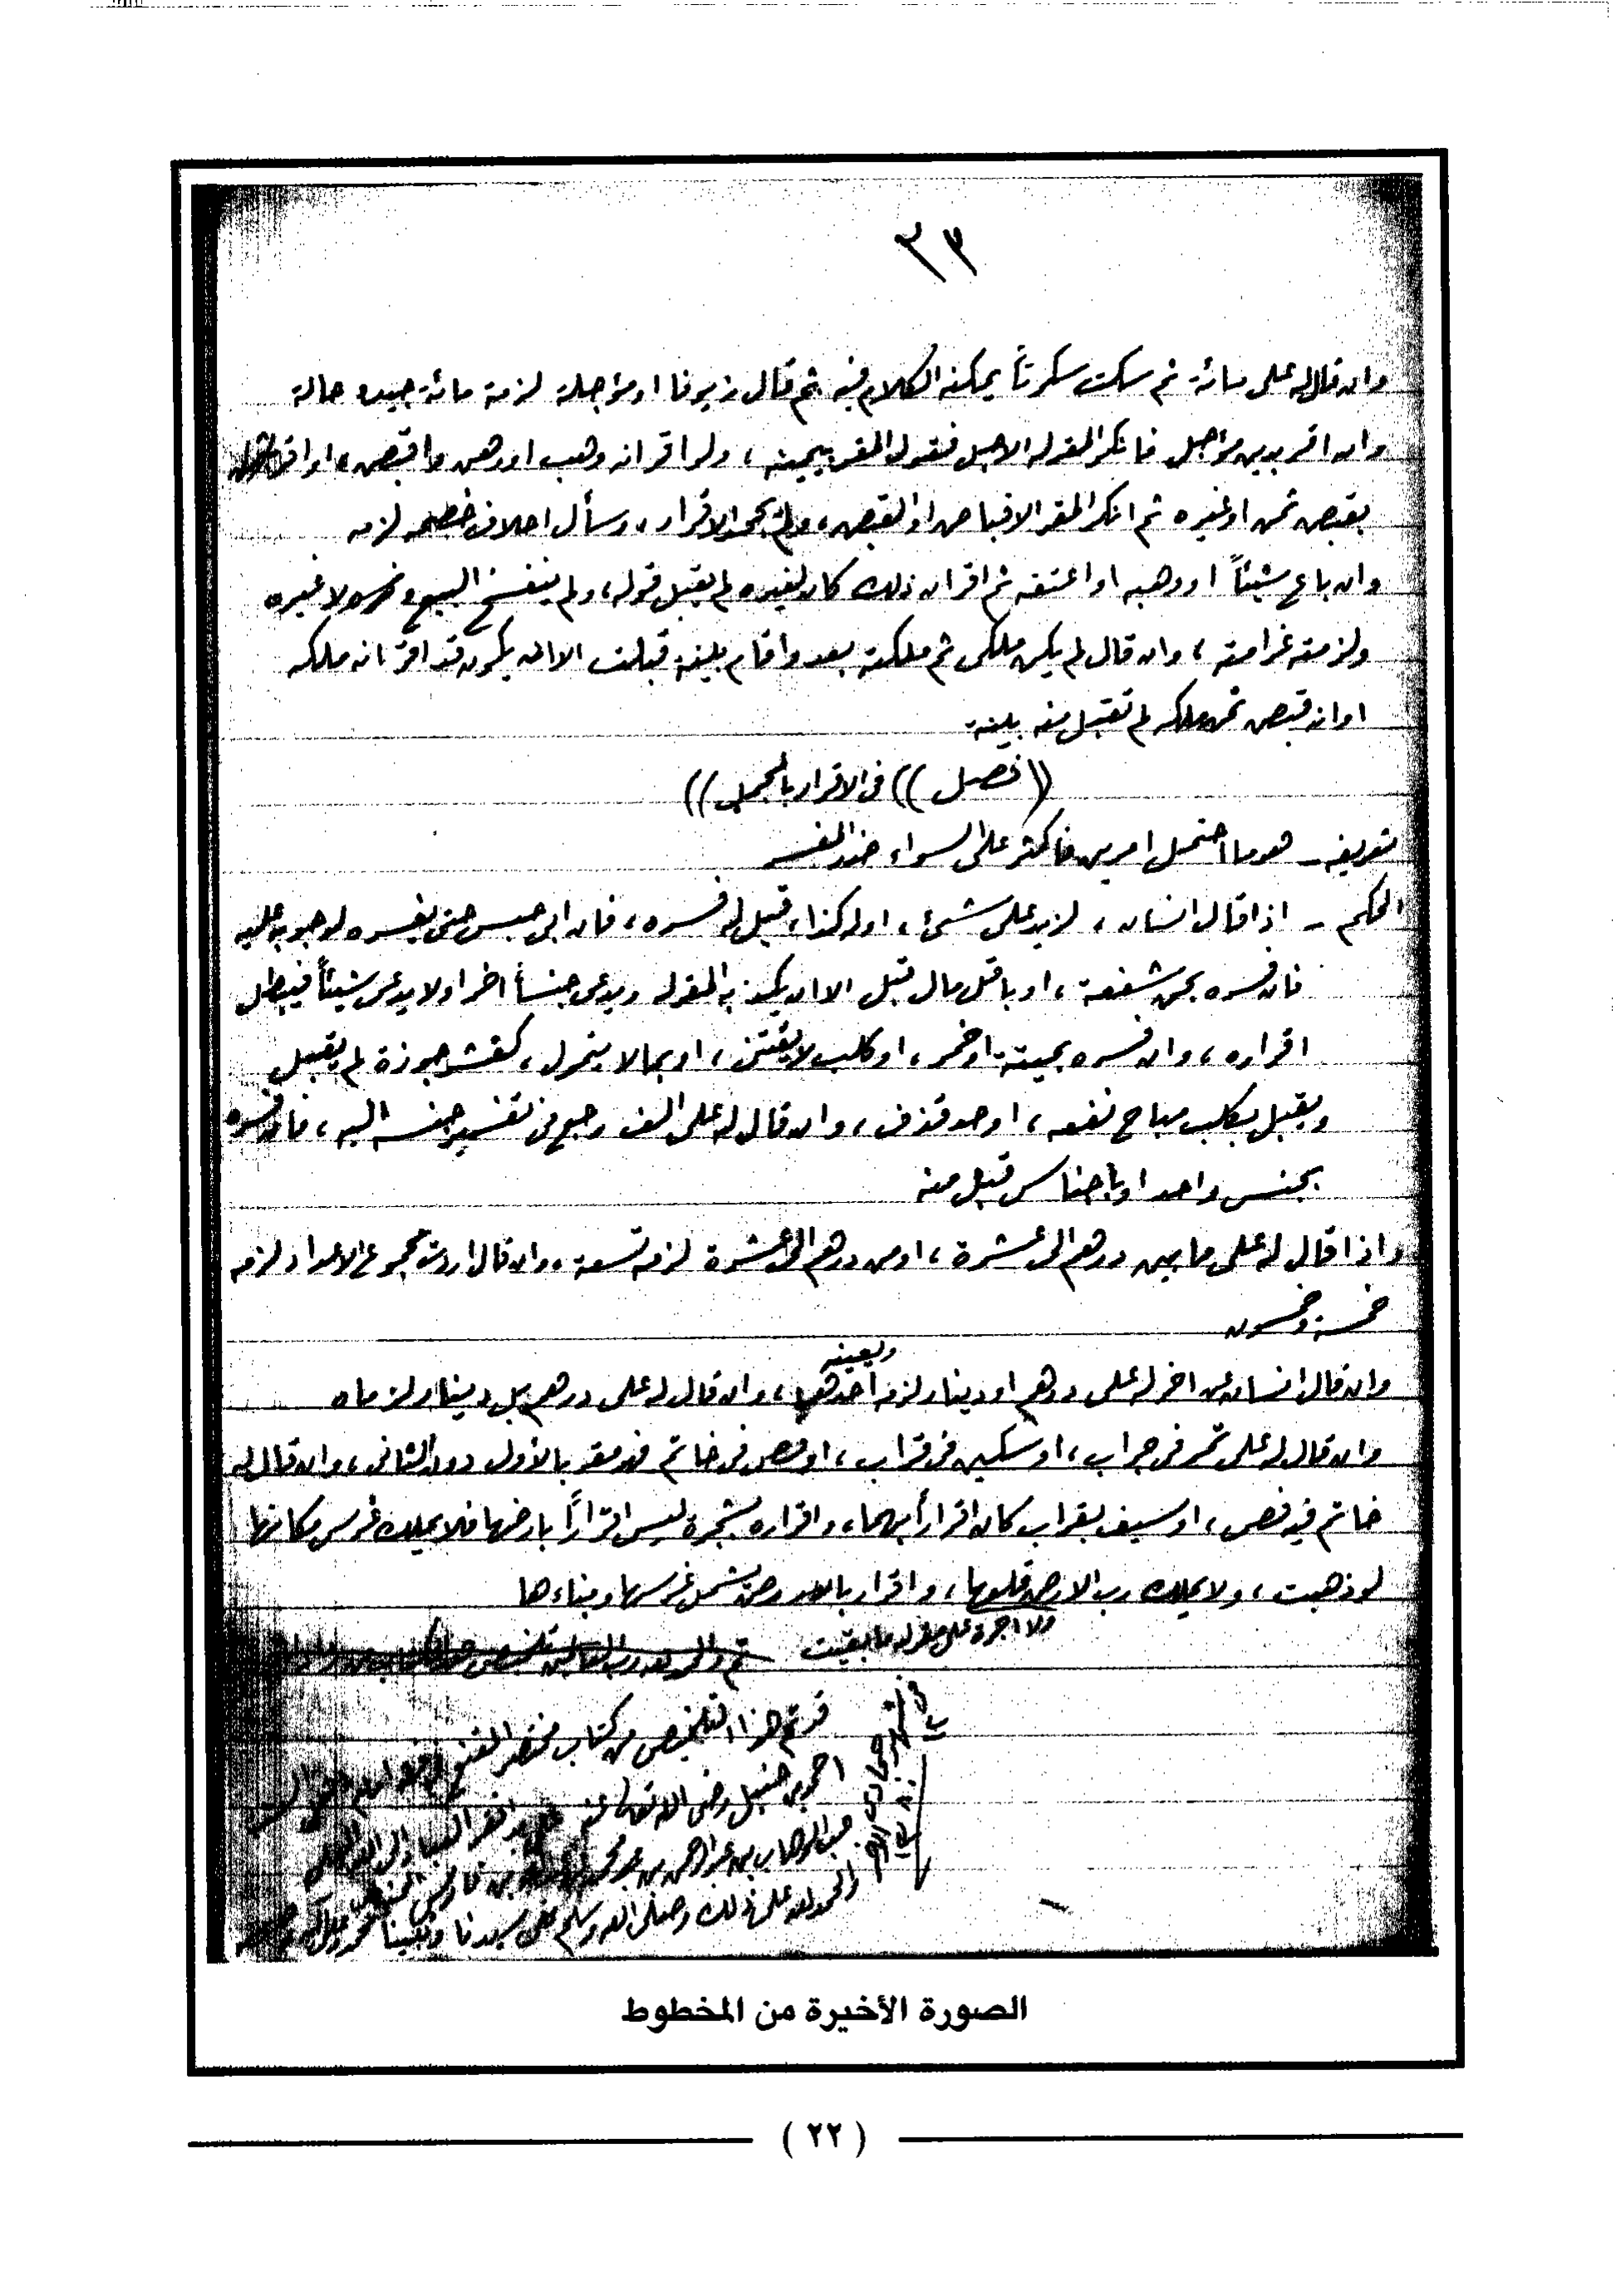 ٣٣
وان قال له على مائة ثم سكت سكوتاً يمكنه الكلام فيه ثم قال زيوفا او مؤجلة لزمة مائة جيدة حالة
وان اقر بدين مؤجل فانكر المقر له الاجل فقول المقر بيمينه ، ولو اقر انه وهب او رهن واقبض ، او اقر
بقبض ثمن او غيره ثم انكر المقر الاقباض او القبض ، ولم يجحد الاقرار ، وسأل احلاف خصمه لزمه
وان باع شيئاً او وهبه او اعتقه ثم اقر ان ذلك كان لغيره لم يقبل قوله ، ولم ينفسخ البيع ولا غيره
ولزمته غرامته ، وان قال لم يكن ملكي ثم ملكته بعد واقام بينة قبلت الا ان يكون قد اقر انه ملكه
او انه قبض ثمن ملكه لم تقبل منه بينة
(( فصل )) في الاقرار بالمجمل ))
تعريفه - هو ما احتمل امرين فاكثر على السواء ضد المفسر
الحكم - اذا قال انسان ، لزيد على شئ ، او له كذا ، قيل له فسره ، فان ابى حبس حتى يفسره لوجوبه عليه
فان فسره بحق شفعة ، او باقل مال قبل الا ان يكذبه المقر له ويدعى جنساً اخر او لا يدعى شيئاً فيبطل
اقراره ، وان فسره بميتة او خمر ، او كلب لا يقتنى ، او بما لا يتمول ، كقشر جوزة لم يقبل
ويقبل بكلب مباح نفعه ، او حد قذف ، وان قال له على الف رجع فى تفسير جنسه اليه ، فان فسره
بجنس واحد او باجناس قبل منه
واذا قال له على ما بين درهم الى عشرة ، او من درهم الى عشرة لزمه تسعة ، وان قال اردت مجموع الاعداد لزمه
خمسة وخمسون
وان قال انسان عن اخر له على درهم او دينار لزمه احدهما ويعينه ، وان قال له على درهم بل دينار لزماه
وان قال له على تمر فى جراب ، او سكين فى قراب ، او فص فى خاتم فهو مقر بالأول دون الثانى ، وان قال له
خاتم فيه فص ، او سيف بقراب كان اقراراً بهما ، واقراره بشجرة ليس اقراراً بارضها فلا يملك غرس مكانها
لو ذهبت ، ولا يملك رب الارض قلعها ، واقرار بالارض يشمل غرسها وبناءها
ولا اجرة على مقر له ما بقيت
تم والحمد لله رب العالمين
قد تم هذا التلخيص من كتاب مختصر المقنع
احمد بن حنبل رضى الله تعالى عنه
عبد الوهاب بن عبد الرحمن بن
والحمد لله على ذلك وصلى الله وسلم على سيدنا ونبينا محمد
الصورة الأخيرة من المخطوط
( ٢٢ )